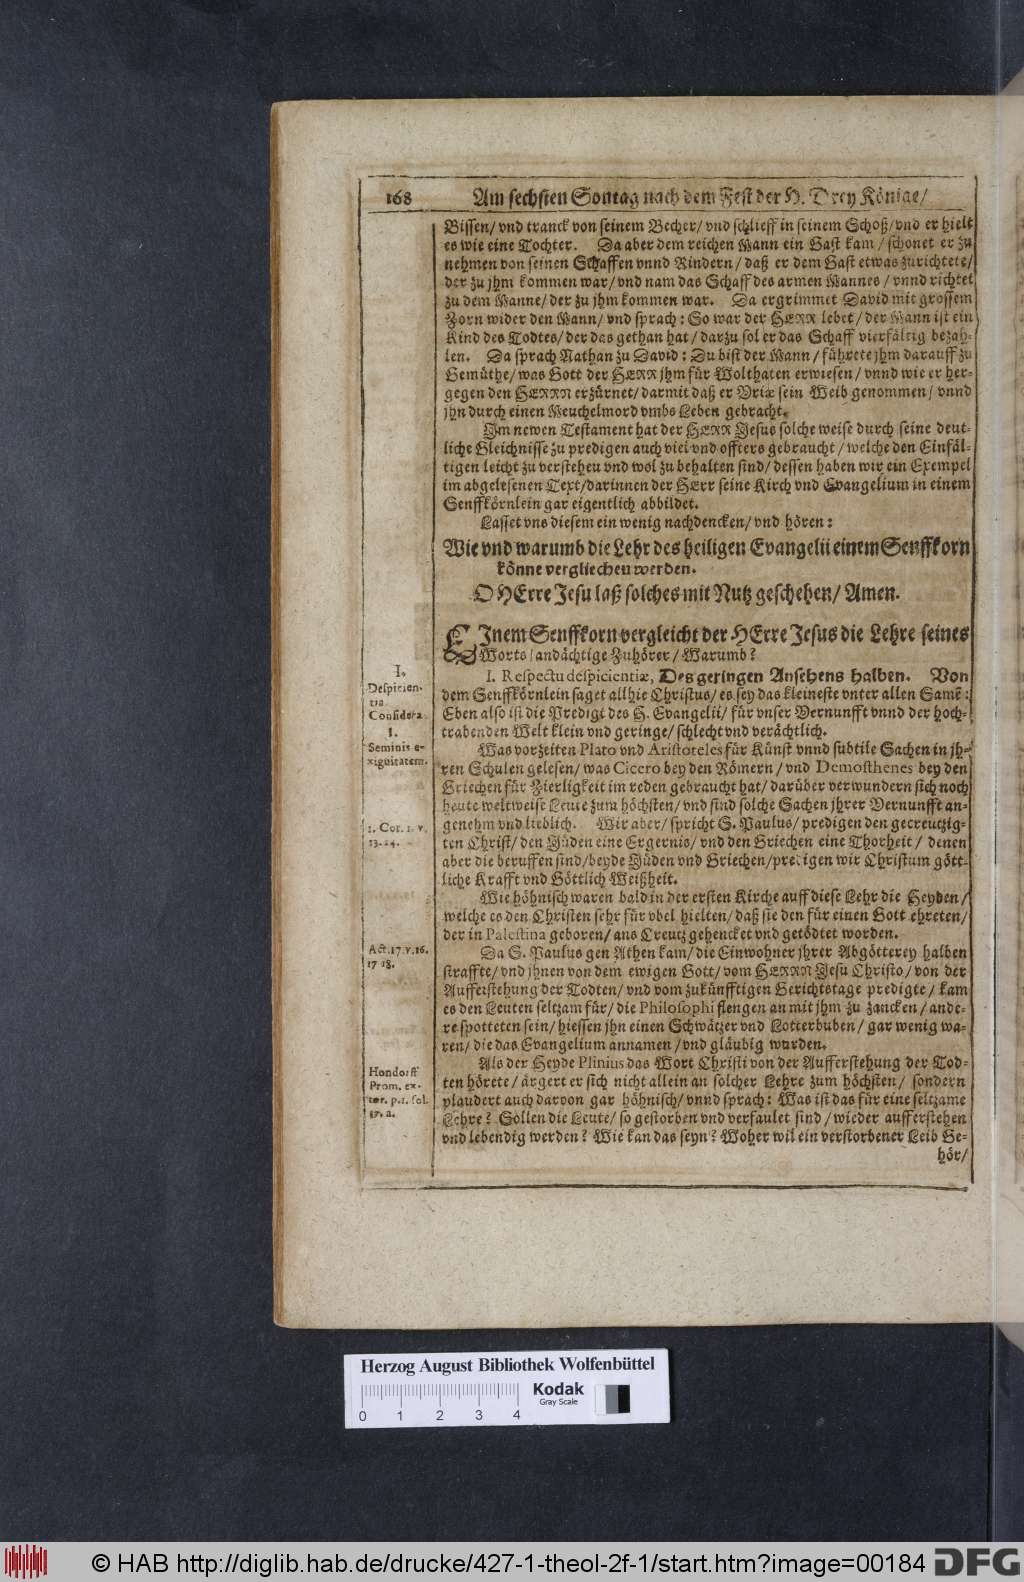 168 Am sechsten Sontag nach dem Fest der H. Drey Könige/
Bissen/ vnd tranck von seinem Becher/ vnd schlieff in seinem Schoß/ vnd er hielt
es wie eine Tochter. Da aber dem reichen Mann ein Gast kam/ schonet er zu
nehmen von seinen Schaffen vnnd Rindern/ daß er dem Gast etwas zurichtete/
der zu jhm kommen war/ vnd nam das Schaff des armen Mannes/ vnnd richtet
zu dem Manne/ der zu jhm kommen war. Da ergrimmet David mit grossem
Zorn wider den Mann/ vnd sprach: So war der HERR lebet/ der Mann ist ein
Kind des Todtes/ der das gethan hat/ darzu sol er das Schaff vierfältig bezah-
len. Da sprach Nathan zu David: Du bist der Mann/ führete jhm darauff zu
Gemüthe/ was Gott der HERR jhm für Wolthaten erwiesen/ vnnd wie er her-
gegen den HERRN erzürnet/ darmit daß er Vriæ sein Weib genommen/ vnnd
jhn durch einen Meuchelmord vmbs Leben gebracht.
Im newen Testament hat der HERR Jesus solche weise durch seine deut-
liche Gleichnisse zu predigen auch viel vnd offters gebraucht/ welche den Einfäl-
tigen leicht zu verstehen vnd wol zu behalten sind/ dessen haben wir ein Exempel
im abgelesenen Text/ darinnen der HErr seine Kirch vnd Evangelium in einem
Senffkörnlein gar eigentlich abbildet.
Lasset vns diesem ein wenig nachdencken/ vnd hören:
Wie vnd warumb die Lehr des heiligen Evangelii einem Senffkorn
könne vergliechen werden.
O HErre Jesu laß solches mit Nutz geschehen/ Amen.
EInem Senffkorn vergleicht der HErre Jesus die Lehre seines
Worts/ andächtige Zuhörer/ Warumb?
I.
Despicien-
tia
Considera.
1.
Seminis e-
xiguitatem.
I. Respectu despicientiæ, Des geringen Ansehens halben. Von
dem Senffkörnlein saget allhie Christus/ es sey das kleineste vnter allen Samẽ:
Eben also ist die Predigt des H. Evangelii/ für vnser Vernunfft vnnd der hoch-
trabenden Welt klein vnd geringe/ schlecht vnd verächtlich.
Was vorzeiten Plato vnd Aristoteles für Künst vnnd subtile Sachen in jh-
ren Schulen gelesen/ was Cicero bey den Römern/ vnd Demosthenes bey den
Griechen für Zierligkeit im reden gebraucht hat/ darüber verwundern sich noch
heute weltweise Leute zum höchsten/ vnd sind solche Sachen jhrer Vernunfft an-
genehm vnd lieblich. Wir aber/ spricht S. Paulus/ predigen den gecreutzig-
ten Christ/ den Jüden eine Ergernis/ vnd den Griechen eine Thorheit/ denen
aber die beruffen sind/ beyde Jüden vnd Griechen/ predigen wir Christum gött-
liche Krafft vnd Göttlich Weißheit.
1. Cor. 1. v.
23. 24.
Wie höhnisch waren bald in der ersten Kirche auff diese Lehr die Heyden/
welche es den Christen sehr für vbel hielten/ daß sie den für einen Gott ehreten/
der in Palestina geboren/ ans Creutz gehencket vnd getödtet worden.
Act. 17. v. 16.
17 18.
Da S. Paulus gen Athen kam/ die Einwohner jhrer Abgötterey halben
straffte/ vnd jhnen von dem ewigen Gott/ vom HERRN Jesu Christo/ von der
Aufferstehung der Todten/ vnd vom zukünfftigen Gerichtstage predigte/ kam
es den Leuten seltzam für/ die Philosophi fiengen an mit jhm zu zancken/ ande-
re spotteten sein/ hiessen jhn einen Schwätzer vnd Lotterbuben/ gar wenig wa-
ren/ die das Evangelium annamen/ vnd gläubig wurden.
Hondorff
Prom. ex-
fol.
Als der Heyde Plinius das Wort Christi von der Aufferstehung der Tod-
ten hörete/ ärgert er sich nicht allein an solcher Lehre zum höchsten/ sondern
plaudert auch darvon gar höhnisch/ vnnd sprach: Was ist das für eine seltzame
Lehre? Sollen die Leute/ so gestorben vnd verfaulet sind/ wieder aufferstehen
vnd lebendig werden? Wie kan das seyn? Woher wil ein verstorbener Leib Ge-
hör/
Herzog August Bibliothek Wolfenbüttel
0 1 2 3 4
Kodak
Gray Scale
© HAB http://diglib.hab.de/drucke/427-1-theol-2f-1/start.htm?image=00184 DFG